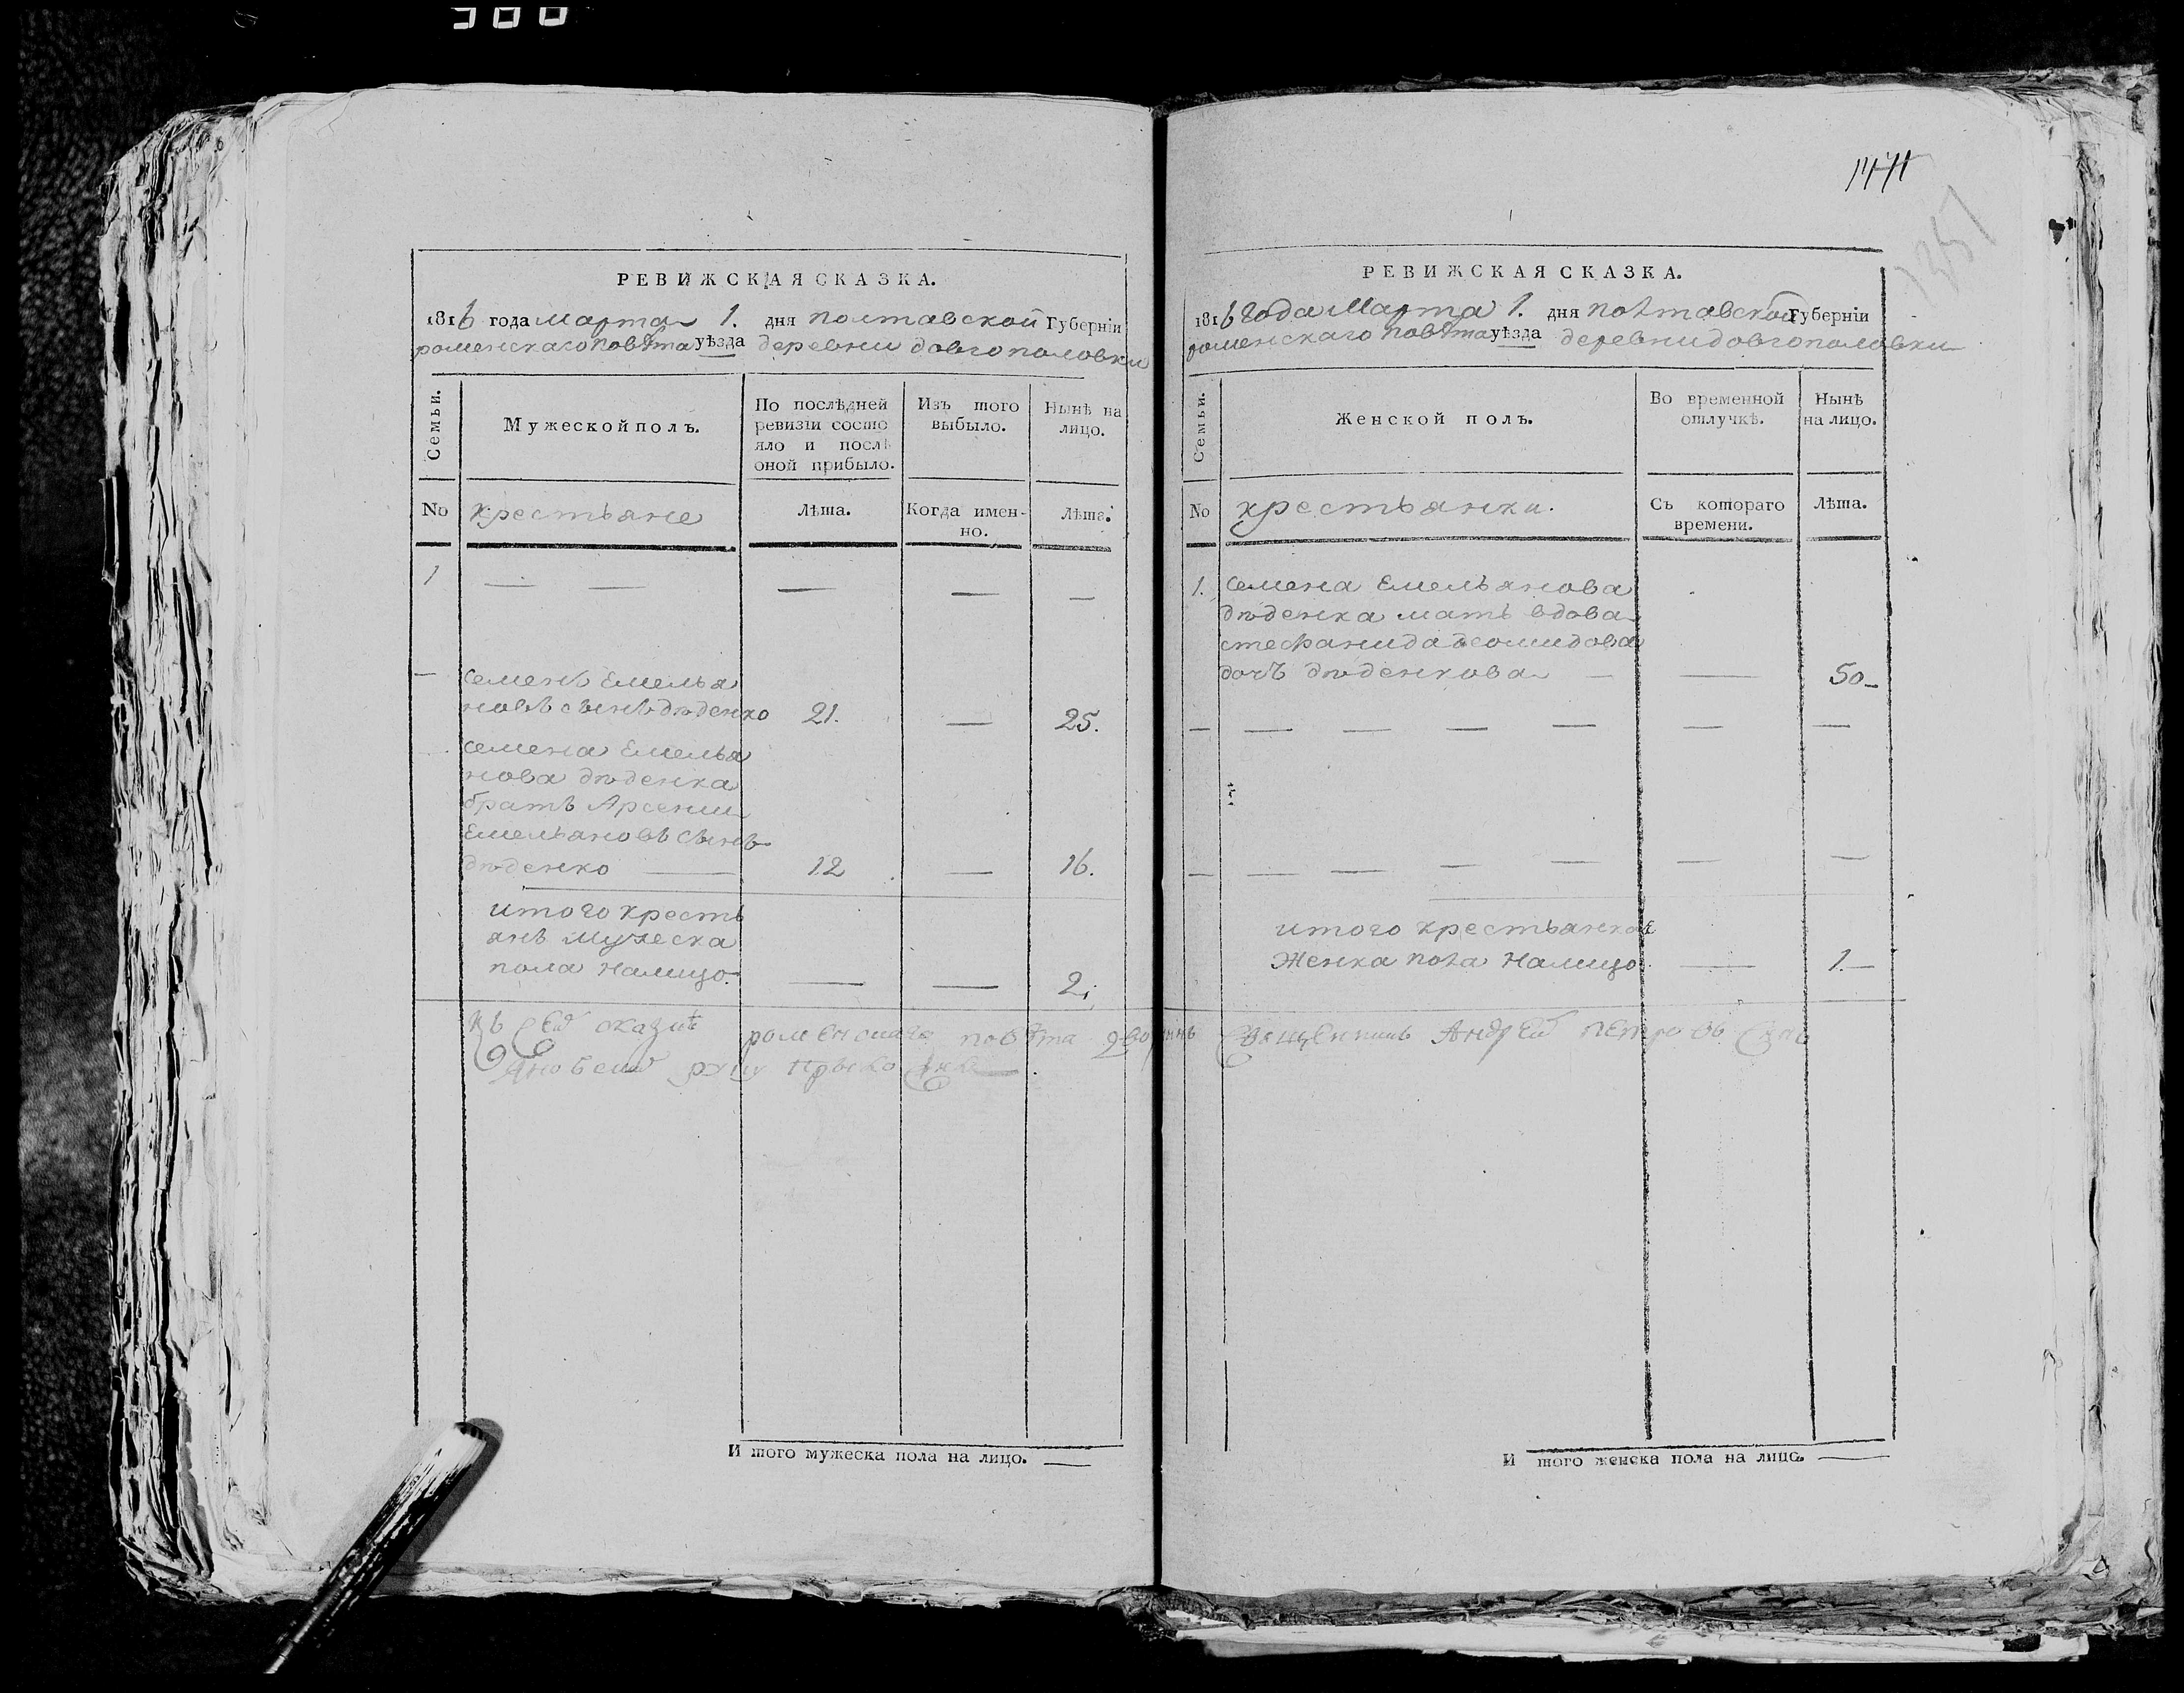 РЕВИЖСКАЯ СКАЗКА.
1816 года марта 1. дня полтавской Губерніи
роменскаго повѣта уѣзда деревни довгополовки
Семьи.
Мужеской полъ.
По послѣдней
ревизіи состо
яло и послѣ
оной прибыло.
Изъ того
выбыло.
Нынѣ на
лицо.
No
крестьяне
Лѣта.
Когда имен-
но.
Лѣта.
1 — — — — —
— семенъ Емелья
новъ сынъ дѣденко 21. — 25.
семена Емелья
нова дѣденка
братъ Арсении
Емельяновъ сынъ
дѣденко — 12 — 16.
итого кресть
янъ мужеска
пола налицо. — — 2.
Къ сей сказкѣ роменскаго повѣта дворянинъ Андрей Петровъ сынъ
руку
И того мужеска пола на лицо. —
1471
1351
РЕВИЖСКАЯ СКАЗКА.
1816 года Марта 1. дня полтавской Губерніи
роменскаго повѣта уѣзда деревни довгополовки
Семьи.
Женской полъ.
Во временной
отлучкѣ.
Нынѣ
на лицо.
No
крестьянки.
Съ котораго
времени.
Лѣта.
1. семена Емельянова
дѣденка мать вдова
стефанида деомидова
дочь дѣденкова — — 50
— — — — — — —
— — — — — — —
итого крестьянокъ
Женска пола налицо. — 1.
И того женска пола на лицо. —